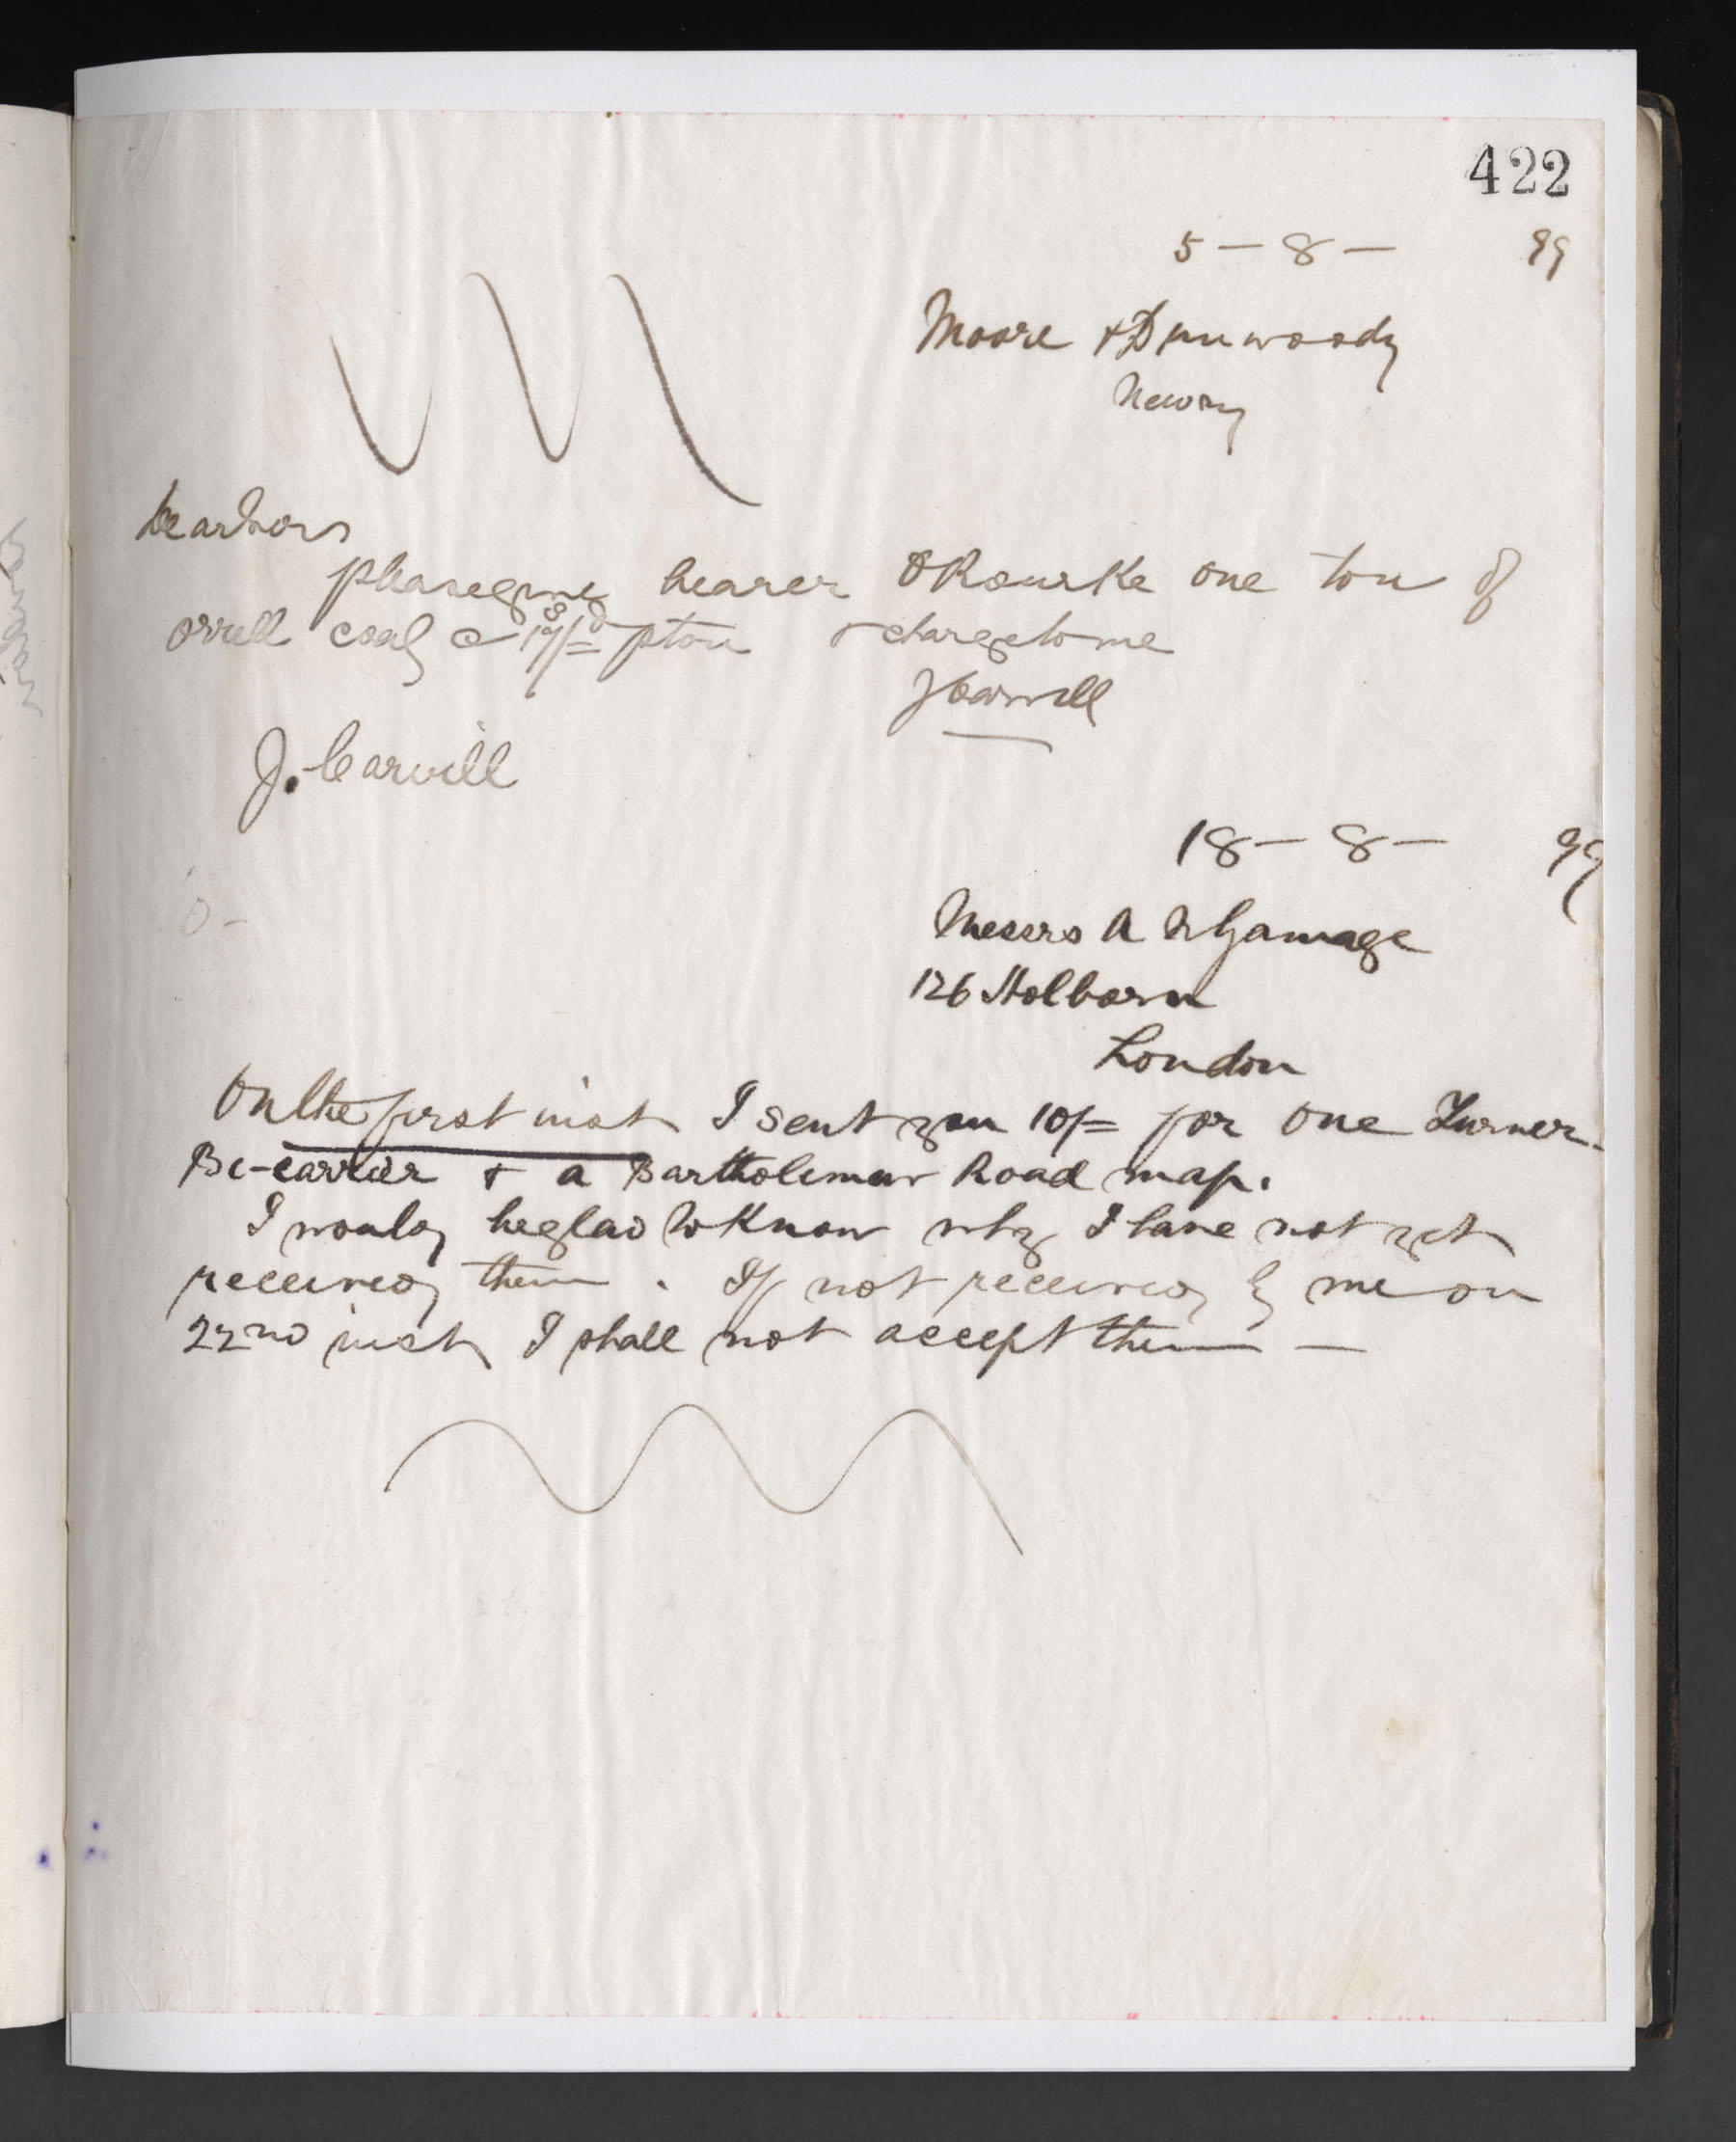 422
5 - 8 - 99
Moore & Dunwoody
Newry
Dear Sirs
please give bearer O Rourke one ton of
orrell coal @ p ton & charge to me
J Carvill
J. Carvill
18 - 8 - 99
Messrs A W Gamage
126 Holborn
London
On the first inst I sent you 10/= for one Turner
Bi-carrier & a Bartholemew Road map.
I would be glad to know why I have not yet
received them. If not received by me on
22nd inst I shall not accept them -